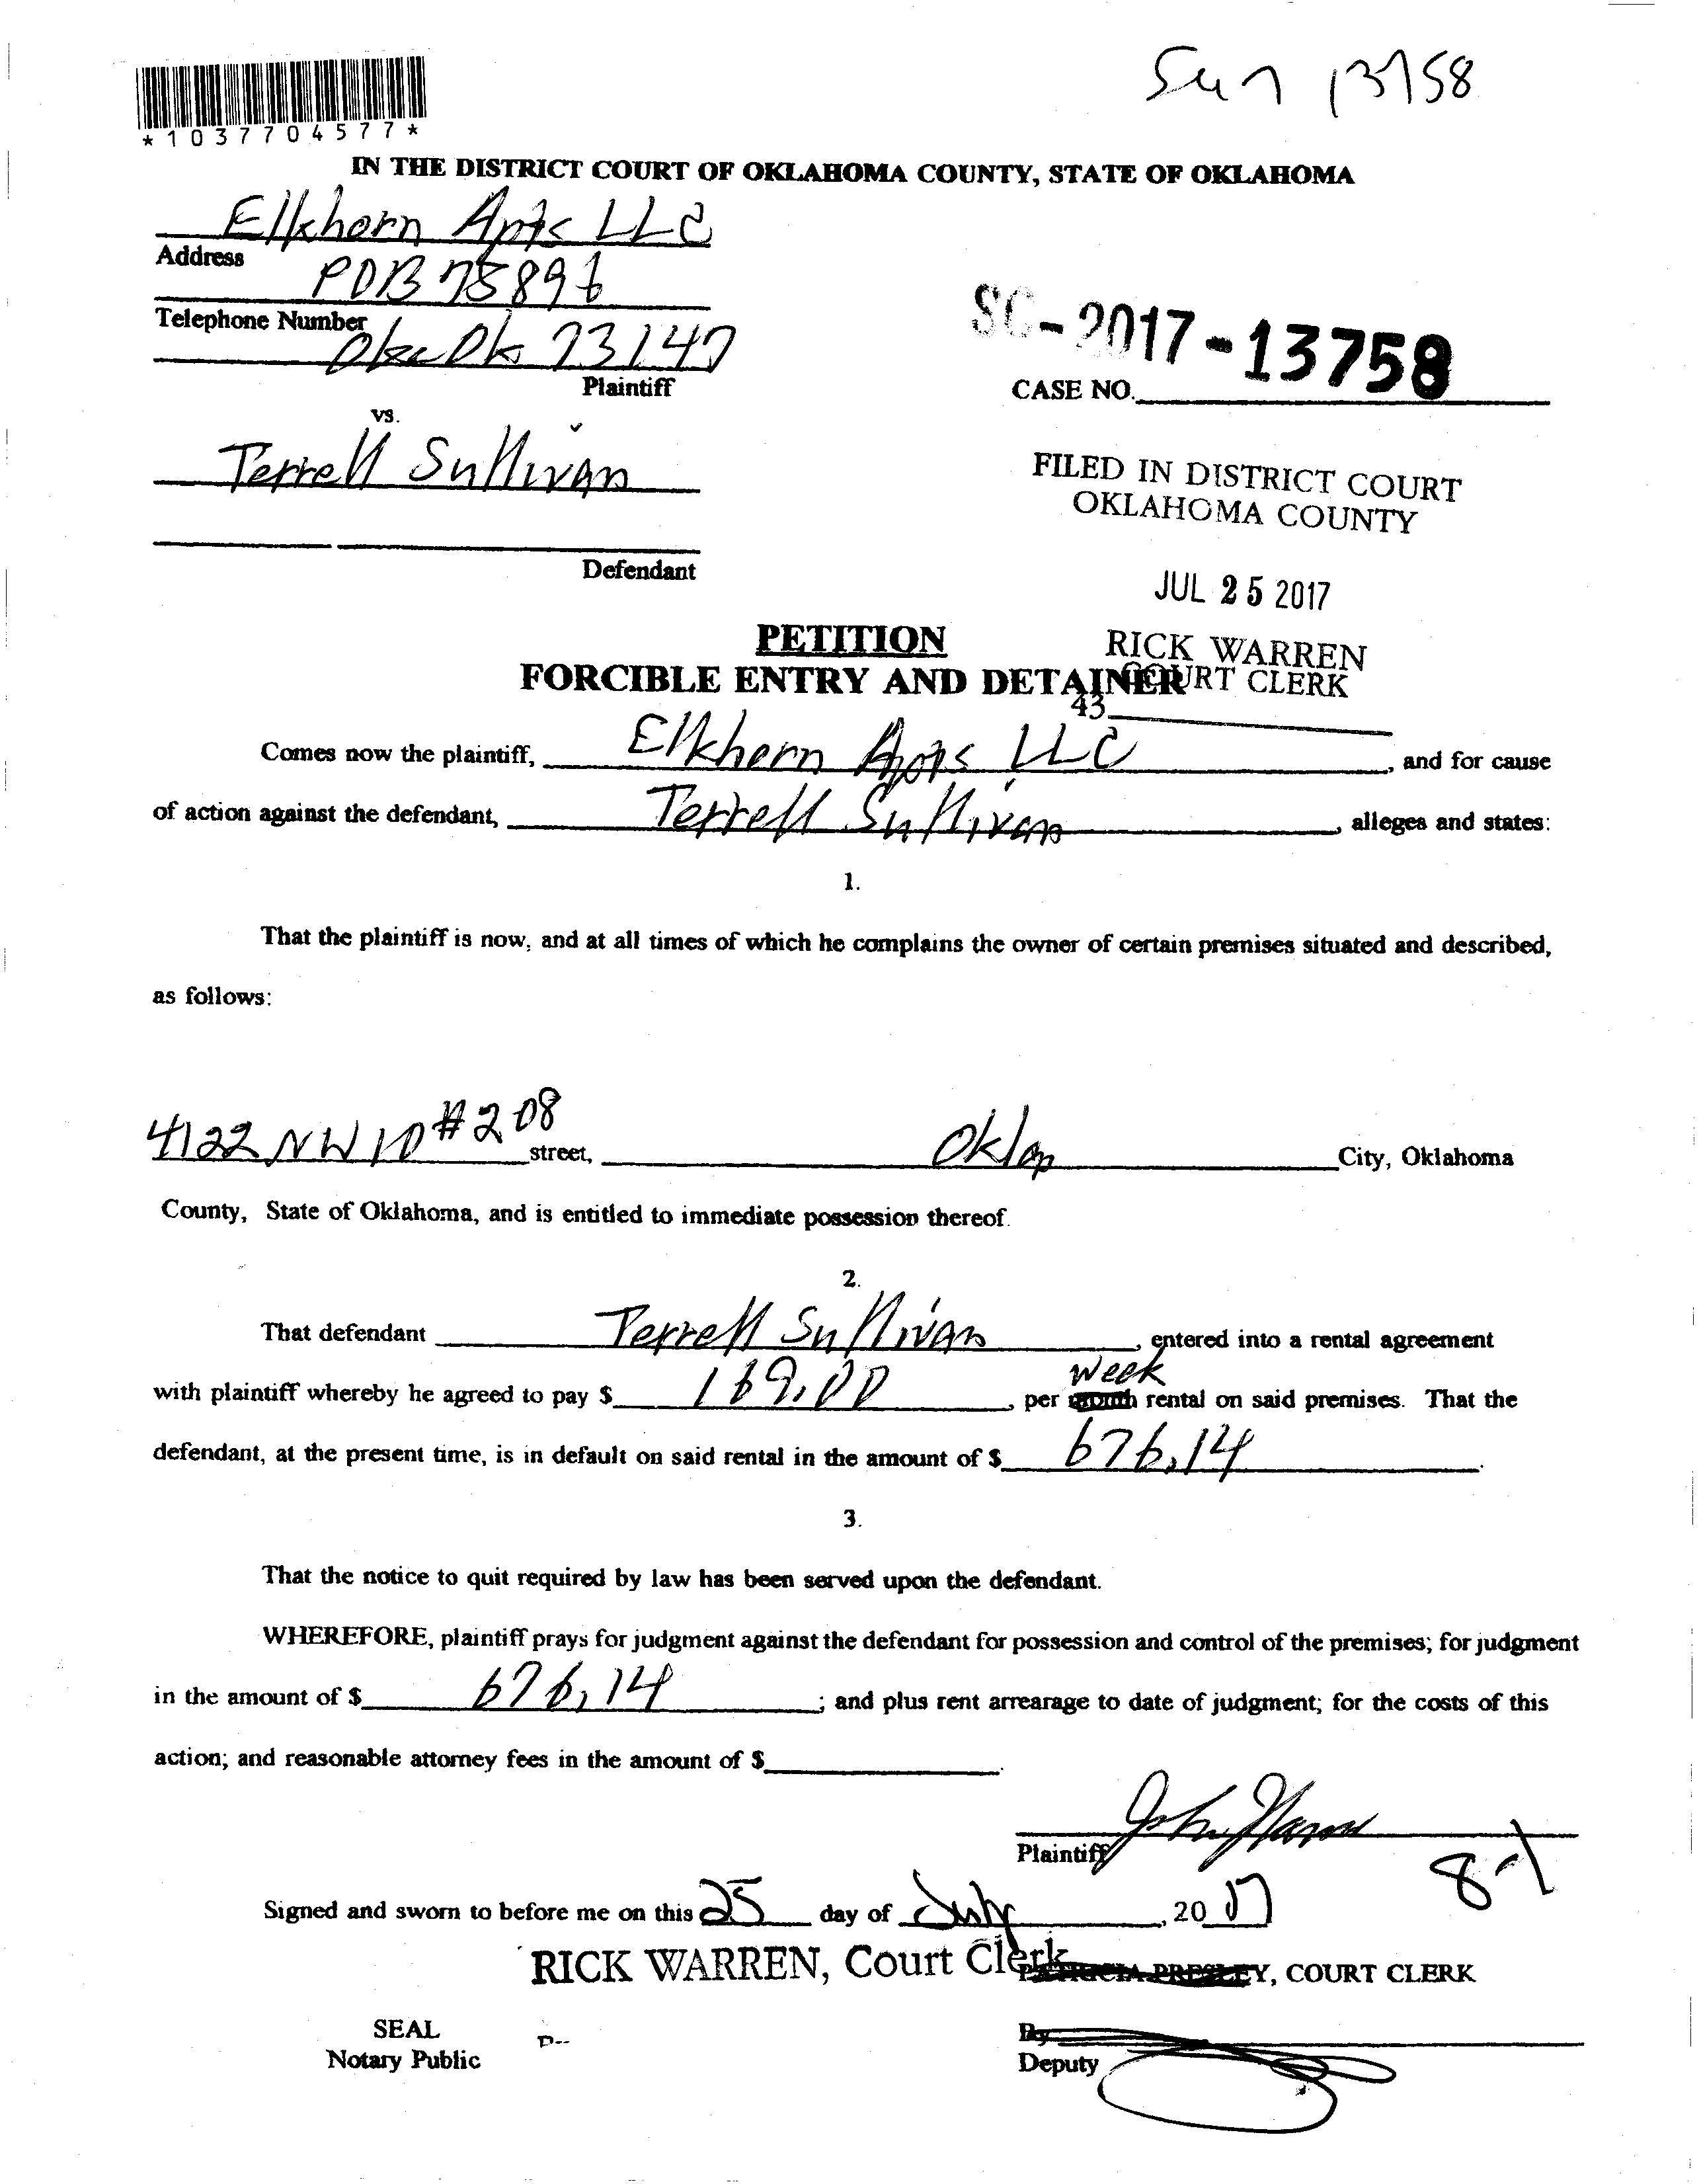 Sun 13758
*1037704577*
IN THE DISTRICT COURT OF OKLAHOMA COUNTY, STATE OF OKLAHOMA
Elkhorn Apts LLC
Address
POB 75896
Telephone Number
Okc Ok 73147
Plaintiff
SC-2017-13758
CASE NO.
vs.
Terrell Sullivan
Defendant
FILED IN DISTRICT COURT
OKLAHOMA COUNTY
JUL 25 2017
RICK WARREN
COURT CLERK
43
PETITION
FORCIBLE ENTRY AND DETAINER
Comes now the plaintiff, Elkhorn Apts LLC, and for cause
of action against the defendant, Terrell Sullivan, alleges and states:
1.
That the plaintiff is now, and at all times of which he complains the owner of certain premises situated and described,
as follows:
4122 NW 10 #208 street, Oklan City, Oklahoma
County, State of Oklahoma, and is entitled to immediate possession thereof.
2.
That defendant Terrell Sullivan, entered into a rental agreement
with plaintiff whereby he agreed to pay $ 169.00, per month week rental on said premises. That the
defendant, at the present time, is in default on said rental in the amount of $ 676.14.
3.
That the notice to quit required by law has been served upon the defendant.
WHEREFORE, plaintiff prays for judgment against the defendant for possession and control of the premises; for judgment
in the amount of $ 676.14; and plus rent arrearage to date of judgment; for the costs of this
action; and reasonable attorney fees in the amount of $.
Plaintiff
8-1
Signed and sworn to before me on this 25 day of July, 2017
RICK WARREN, Court Clerk PATRICIA PRESLEY, COURT CLERK
SEAL
Notary Public
By
Deputy